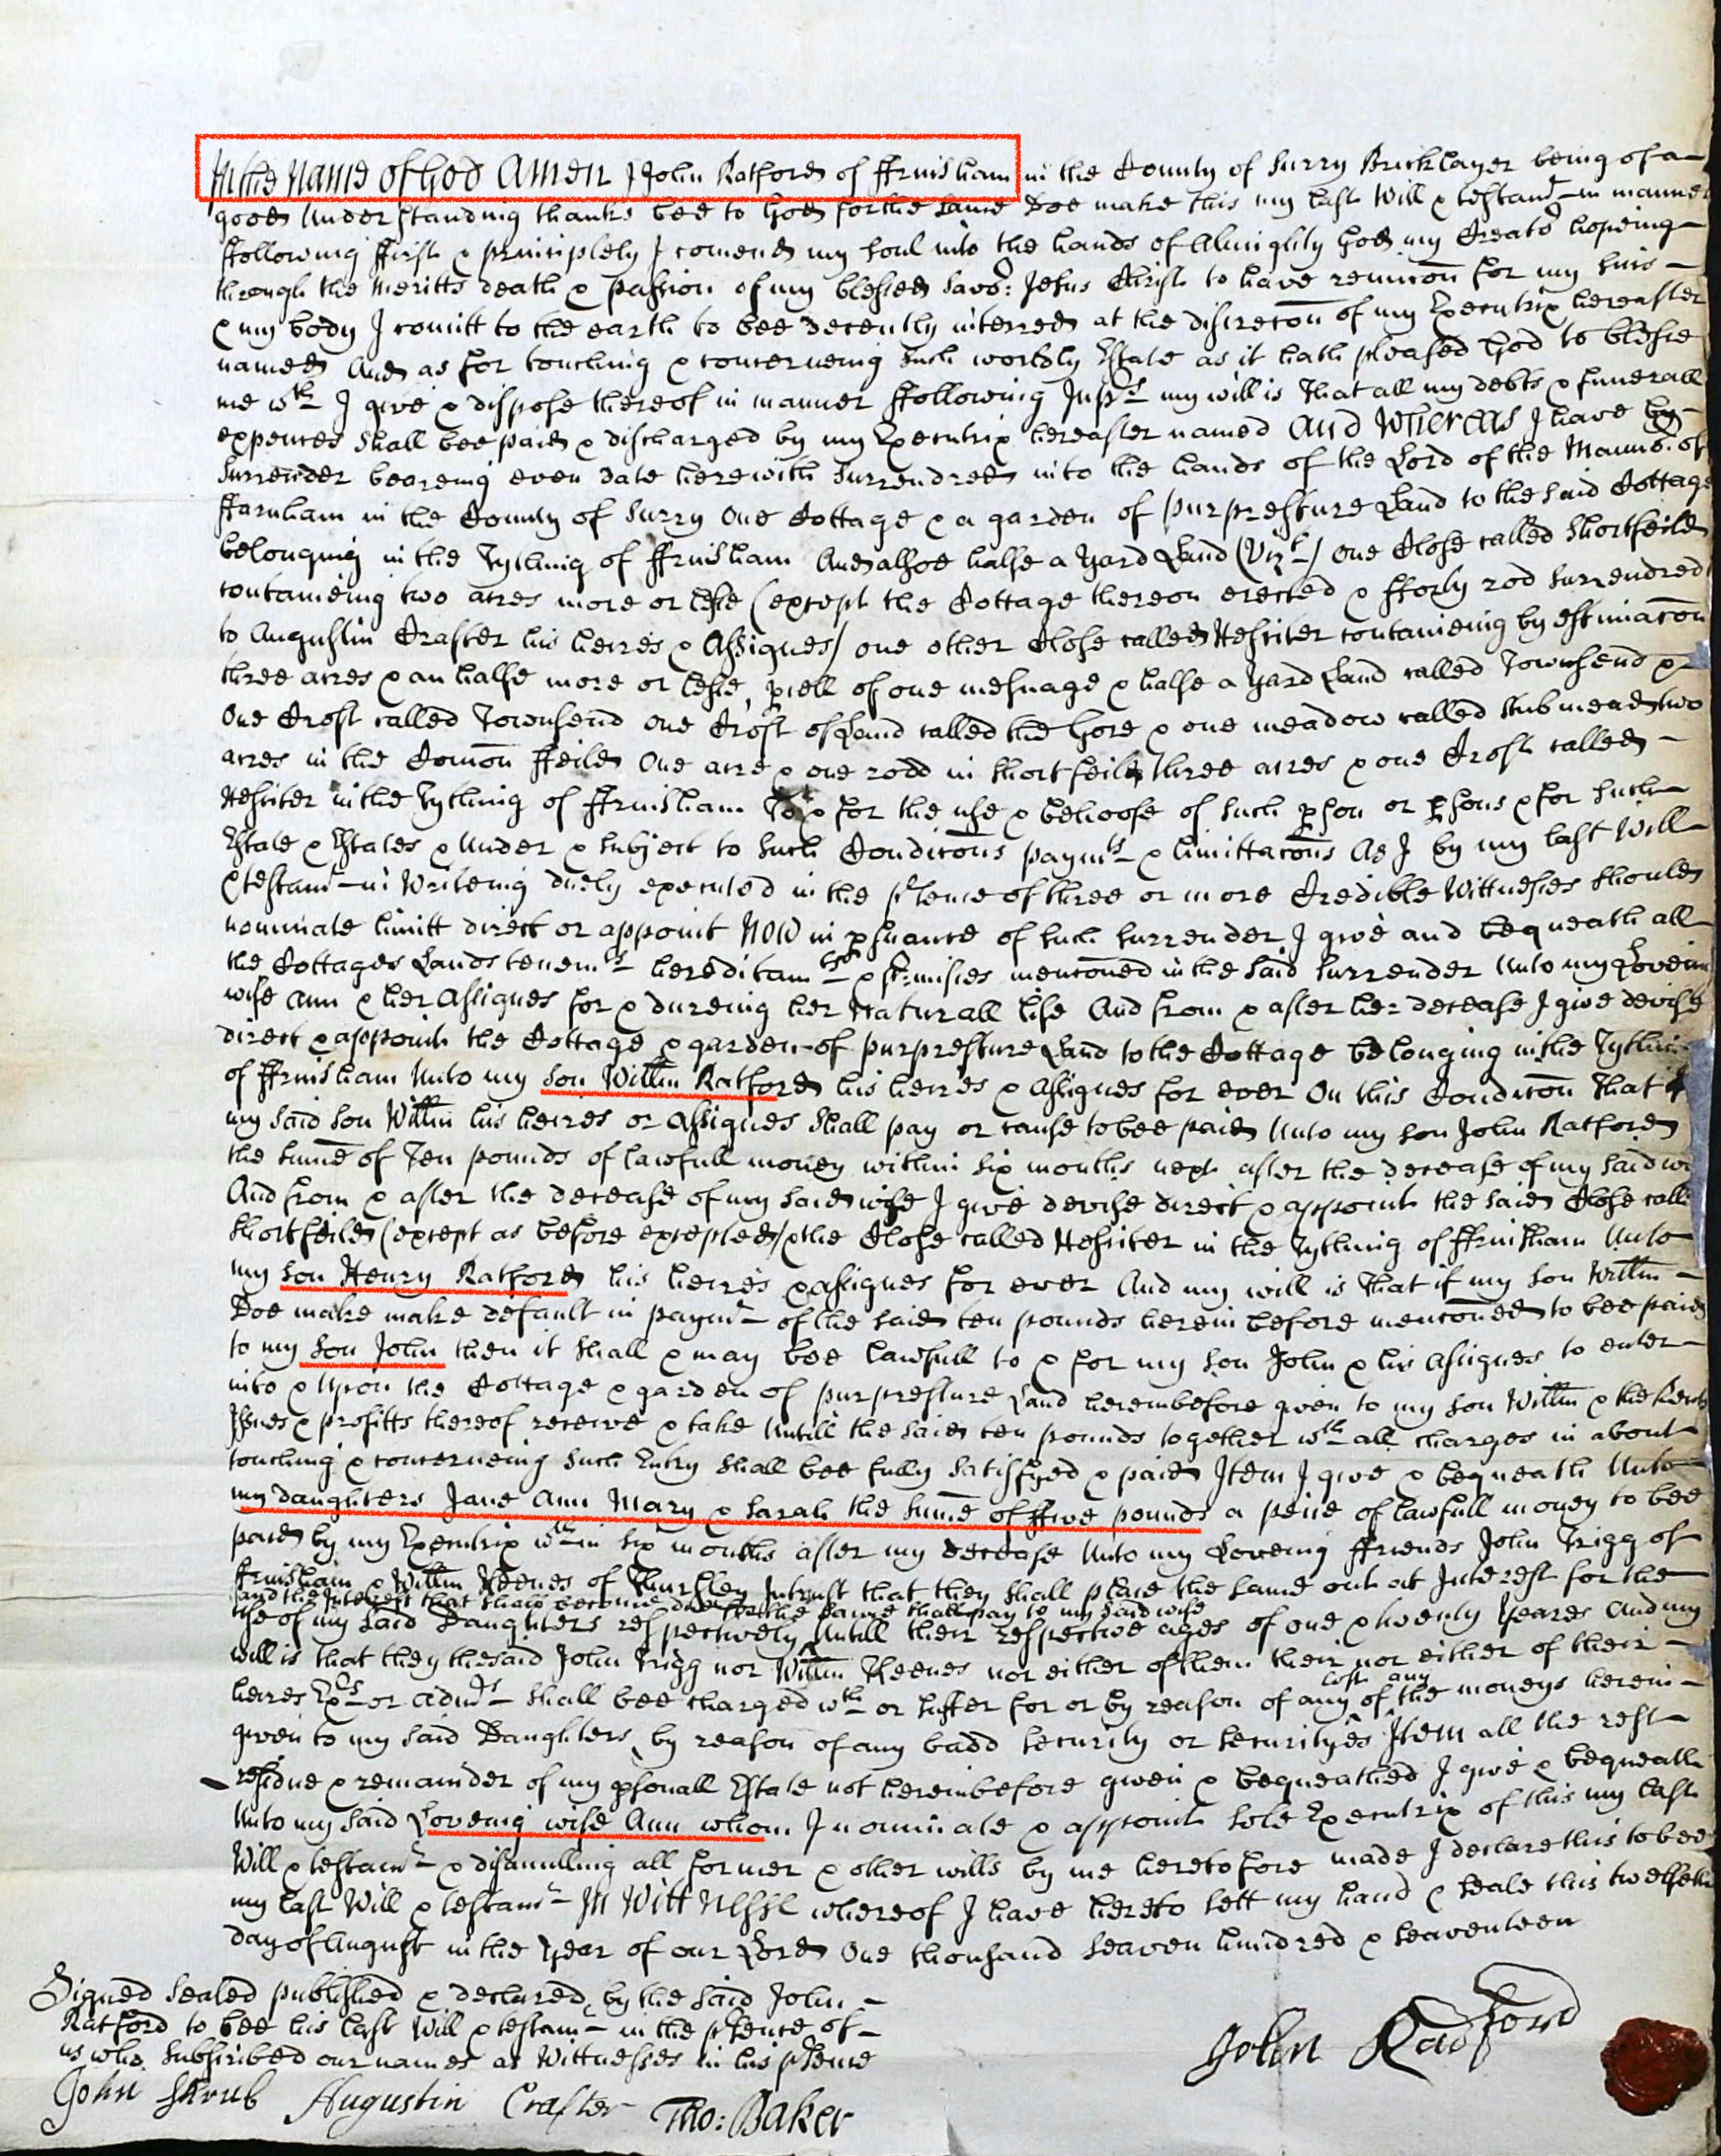 In the Name of God Amen I John Ratford of ffrinsham in the County of Surry Bricklayer being of a
good Understanding thanks bee to God for the same Doe make this my last Will & testamt in manner
ffollowing ffirst & principlely I comend my soul into the hands of Almighty God my Creatr hopeing
through the Meritts death & passion of my blessed Savor: Jesus Christ to have remicon for my sins
& my body I comitt to the earth to bee decently interred at the discrecon of my Executrix hereafter
named And as for touching & concerneing such worldly Estate as it hath pleased God to blesse
me wth I give & dispose thereof in manner ffollowing Inprs my will is That all my debts & funerall
expences shall bee paid & discharged by my Executrix hereafter named And Whereas I have by
Surrender beareing even date herewith Surrendred into the hands of the Lord of the Mannor of
ffarnham in the County of Surry One Cottage & a garden of purpresture Land to the said Cottage
belonging in the Tything of ffrinsham And alsoe halfe a Yard Land (Vizt) one Close called Shortfeild
containeing two acres more or lesse (except the Cottage thereon erected & fforty rod Surrendred
to Augustin Crafter his heires & Assignes) one other Close called Hesiter containeing by estimacon
three acres & an halfe more or lesse, pcell of one mesuage & halfe a Yard Land called Townsend &
One Croft called Townsend One Croft of Land called the Gore & one meadow called Stub mead two
acres in the Comon ffeild One acre & one rodd in Shortfeild three acres & one Croft called
Hesiter in the Tything of ffrinsham To & for the use & behoofe of such pson or psons & for such
Estate & Estates & Under & Subject to such Condicons paymts & limittacons As I by my last Will
& testamt in Writeing duely executed in the psence of three or more Credible Wittnesses should
nominate limitt direct or appoint NOW in psuance of such surrender I give and bequeath all
the Cottages Lands tenemts hereditamts & prmisses menconed in the said Surrender Unto my Loveing
wife Ann & her Assignes for & dureing her Naturall life And from & after her decease I give devise
direct & appoint the Cottage & garden of purpresture Land to the Cottage belonging in the Tything
of ffrinsham Unto my son Willm Ratford his heires & Assignes for ever On this Condicon That
my said son Willm his heires or Assignes Shall pay or cause to bee paid Unto my son John Ratford
the sume of Ten pounds of lawfull money within six months next after the decease of my said wi
And from & after the decease of my said wife I give devise direct & appoint the said Close calle
Shortfeild (except as before excepted) & the Close called Hesiter in the Tything of ffrinsham Unto
my son Henry Ratford his heires & assignes for ever And my will is That if my son Willm
Doe make make default in paymt of the said ten pounds herein before menconed to bee paid
to my son John then it shall & may bee lawfull to & for my son John & his Assignes to enter
into & Upon the Cottage & garden of purpresture Land hereinbefore given to my son Willm & the Rents
Issues & profitts thereof receive & take Untill the said ten pounds together wth all charges in about
touching & concerneing such Entry shall bee fully satisfyed & paid Item I give & bequeath Unto
my daughters Jane Ann Mary & Sarah the sume of ffive pounds a peice of lawfull money to bee
paid by my Executrix wth in six months after my decease Unto my Loveing ffriends John Trigg of
ffrinsham & Willm Keenes of Thursley In trust that they shall place the same out at Interest for the
and the Interest that shall become due for the same shall pay to my said wife
Use of my said Daughters respectively Untill their respective ages of one & twenty Yeares And my
will is that they the said John Trigg nor Willm Keenes nor either of them their nor either of their
lost any
heires Exrs or admrs shall bee charged wth or suffer for or by reason of any of the moneys herein
given to my said Daughters by reason of any badd security or securityes Item all the rest
residue & remainder of my psonall Estate not hereinbefore given & bequeathed I give & bequeath
Unto my said Loveing wife Ann whom I nominate & appoint Sole Executrix of this my last
Will & testamt & disanulling all former & other wills by me heretofore made I declare this to bee
my last Will & testamt In Wittnesse whereof I have hereto sett my hand & seale this twelfeth
day of August in the Year of our Lord One thousand seaven hundred & seaventeen
Signed Sealed published & declared by the said John
Ratford to bee his last Will & testamt in the psence of
us who Subscribed our names as Wittnesses in his psence
John Radford
John Shrub Augustin Crafter Tho: Baker